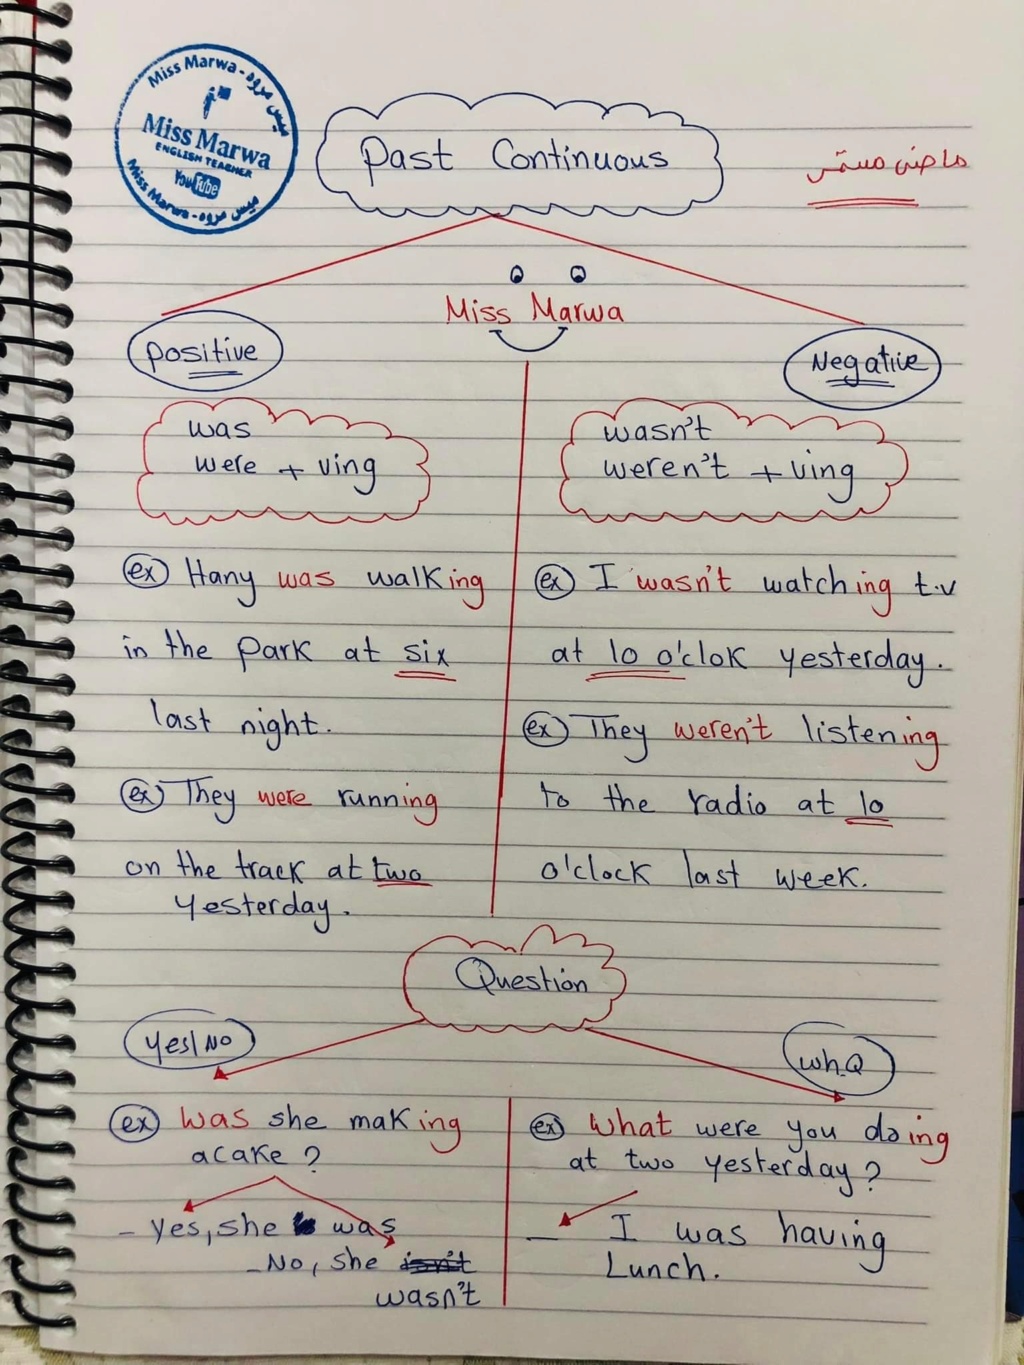 Miss Marwa - ميس مروه
Miss Marwa
ENGLISH TEACHER
YouTube
Miss Marwa - ميس مروه
Past Continuous
ماضى مستمر
Miss Marwa
positive
Negative
was
were + ving
wasn't
weren't + ving
ex Hany was walking
in the park at six
last night.
ex They were running
on the track at two
yesterday.
ex I wasn't watching t.v
at 10 o'clok yesterday.
ex They weren't listening
to the radio at 10
o'clock last week.
Question
yes/No
wh.Q
ex was she making
acake ?
- Yes, she was
- No, she isn't
wasn't
ex What were you doing
at two yesterday ?
- I was having
Lunch.